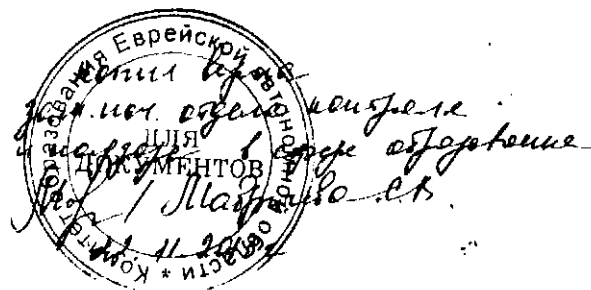 Комитет образования Еврейской автономной области *
ДЛЯ
ДОКУМЕНТОВ
Копия верна
зам. нач. отдела контроля
и надзора в сфере образования
11.20